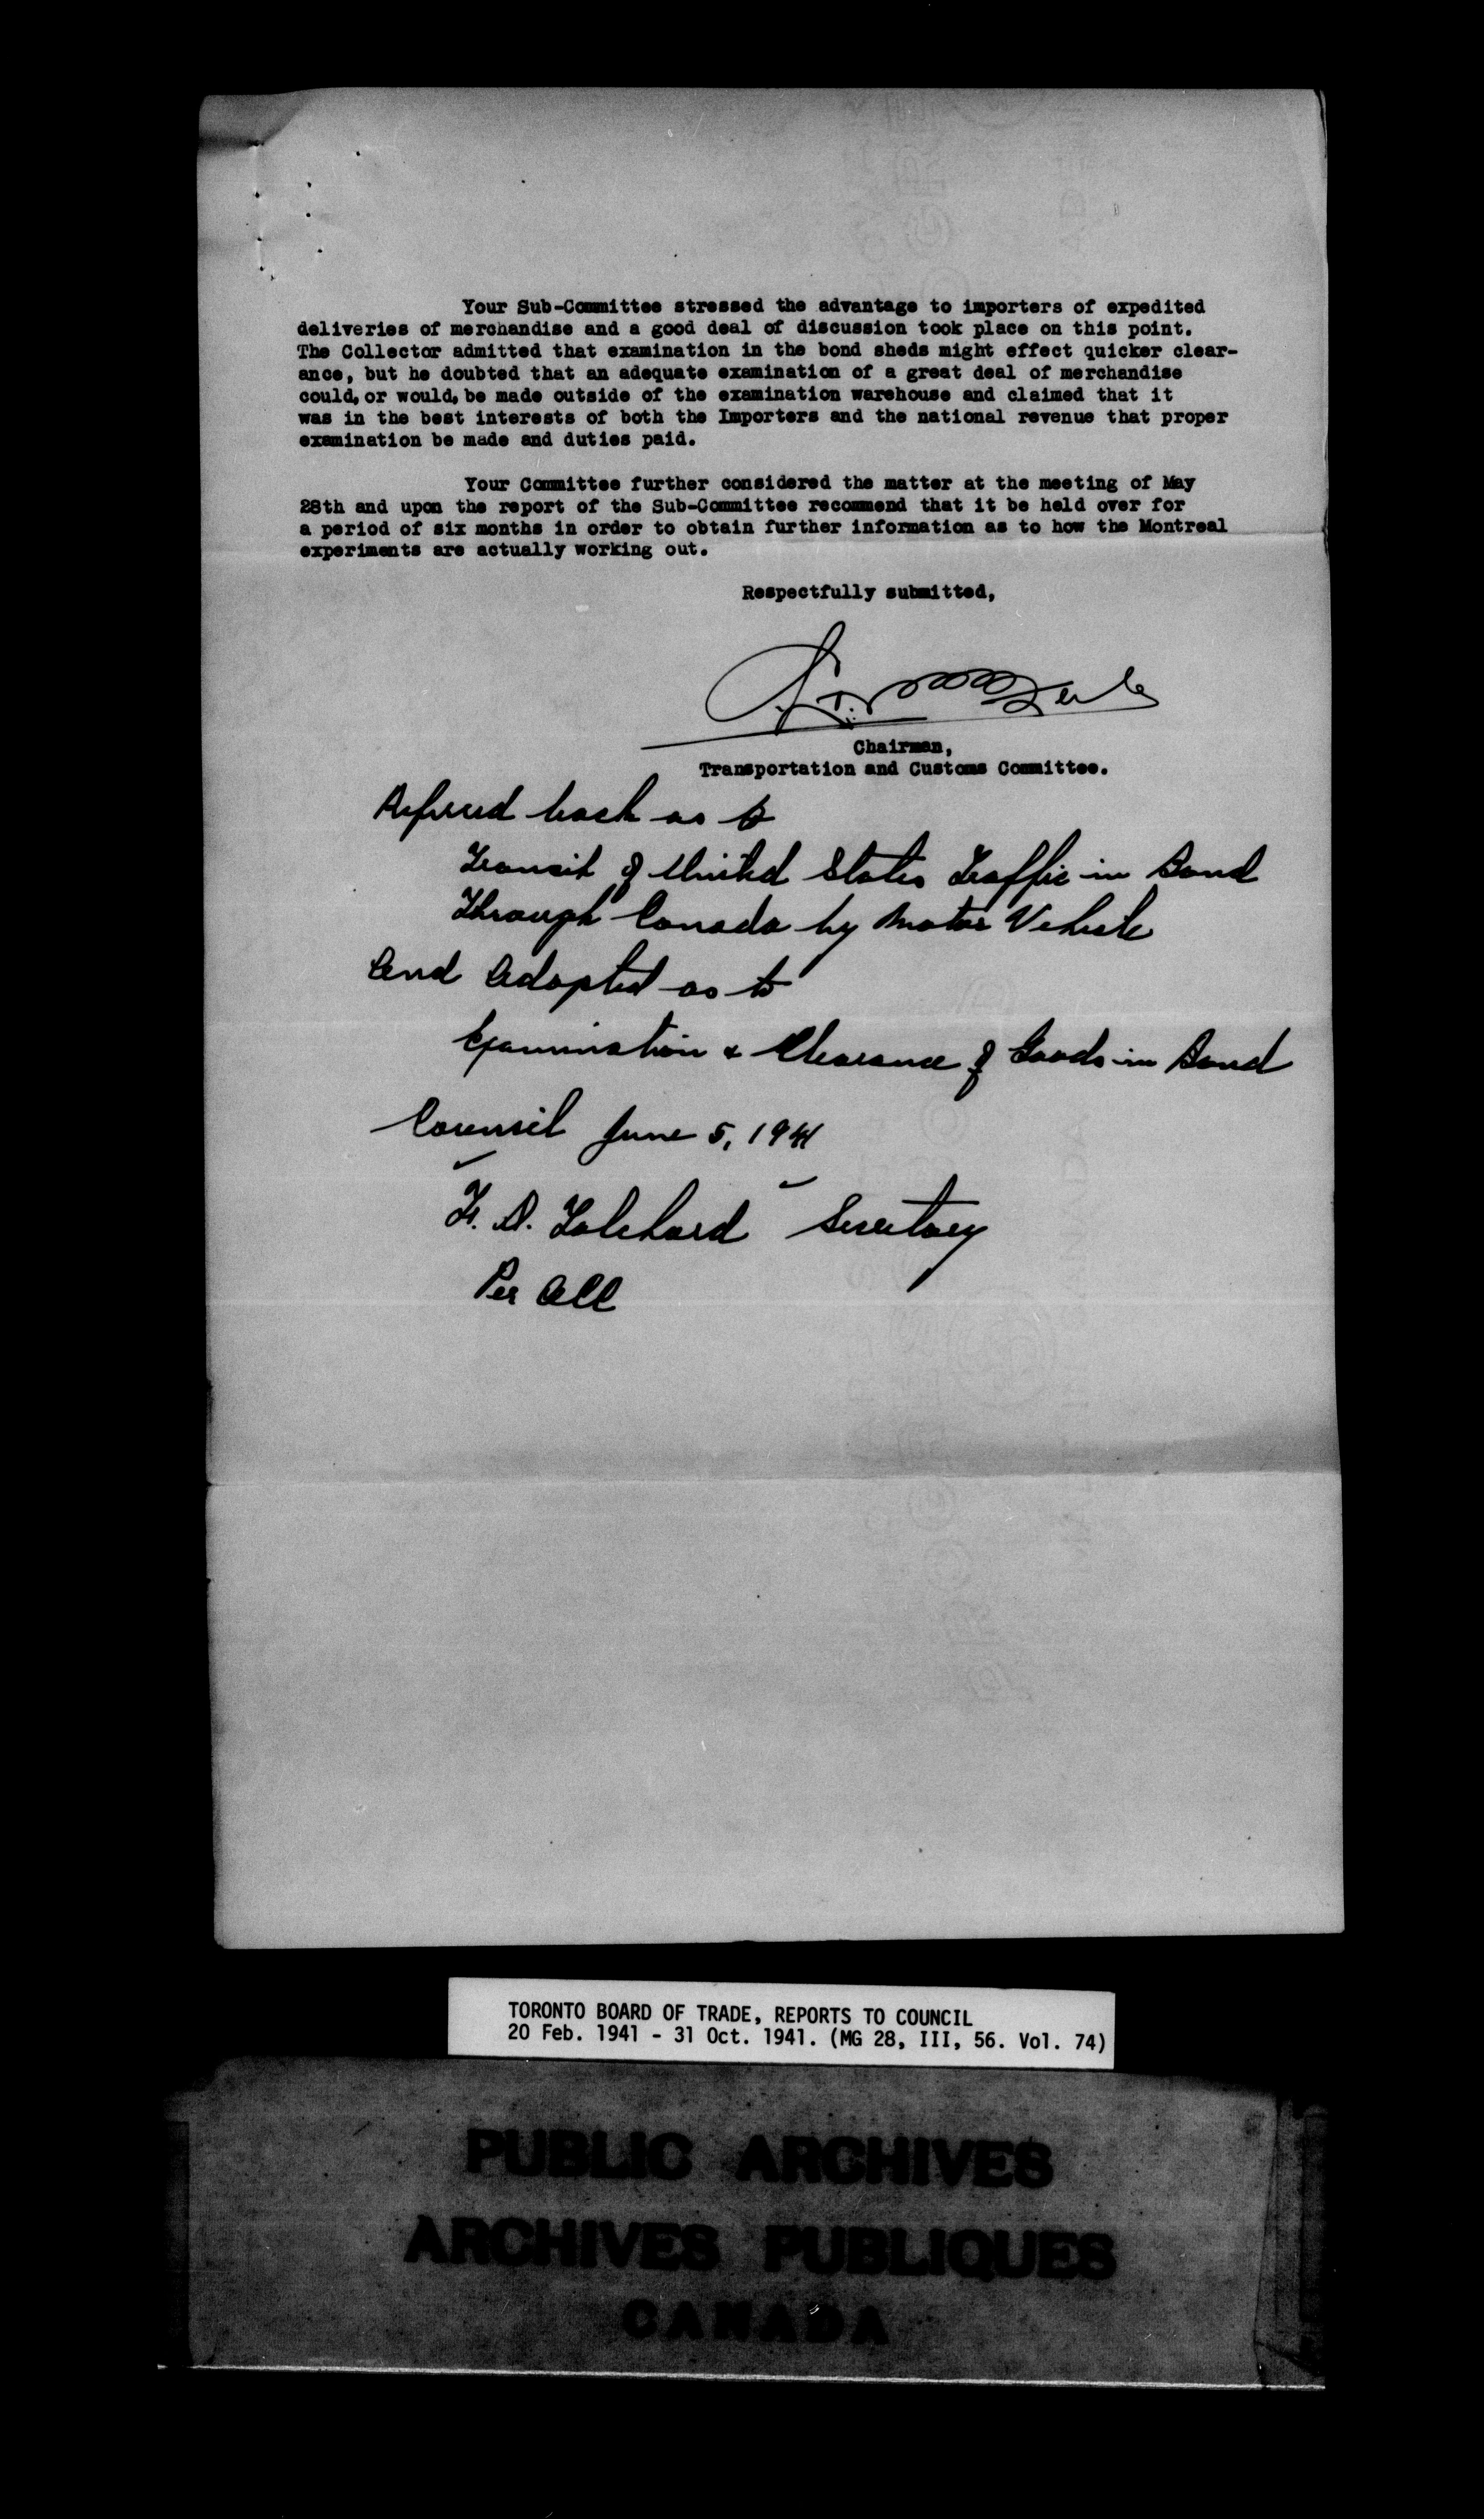 Your Sub-Committee stressed the advantage to importers of expedited
deliveries of merchandise and a good deal of discussion took place on this point.
The Collector admitted that examination in the bond sheds might effect quicker clear-
ance, but he doubted that an adequate examination of a great deal of merchandise
could, or would, be made outside of the examination warehouse and claimed that it
was in the best interests of both the Importers and the national revenue that proper
examination be made and duties paid.
Your Committee further considered the matter at the meeting of May
28th and upon the report of the Sub-Committee recommend that it be held over for
a period of six months in order to obtain further information as to how the Montreal
experiments are actually working out.
Respectfully submitted,
Chairman,
Transportation and Customs Committee.
Referred back as to
Transit of United States Traffic in Bond
Through Canada by Motor Vehicle
And Adopted as to
Examination & Clearance of Goods in Bond
Council June 5, 1941
F. D. Tolchard Secretary
Per
TORONTO BOARD OF TRADE, REPORTS TO COUNCIL
20 Feb. 1941 - 31 Oct. 1941. (MG 28, III, 56. Vol. 74)
PUBLIC ARCHIVES
ARCHIVES PUBLIQUES
CANADA